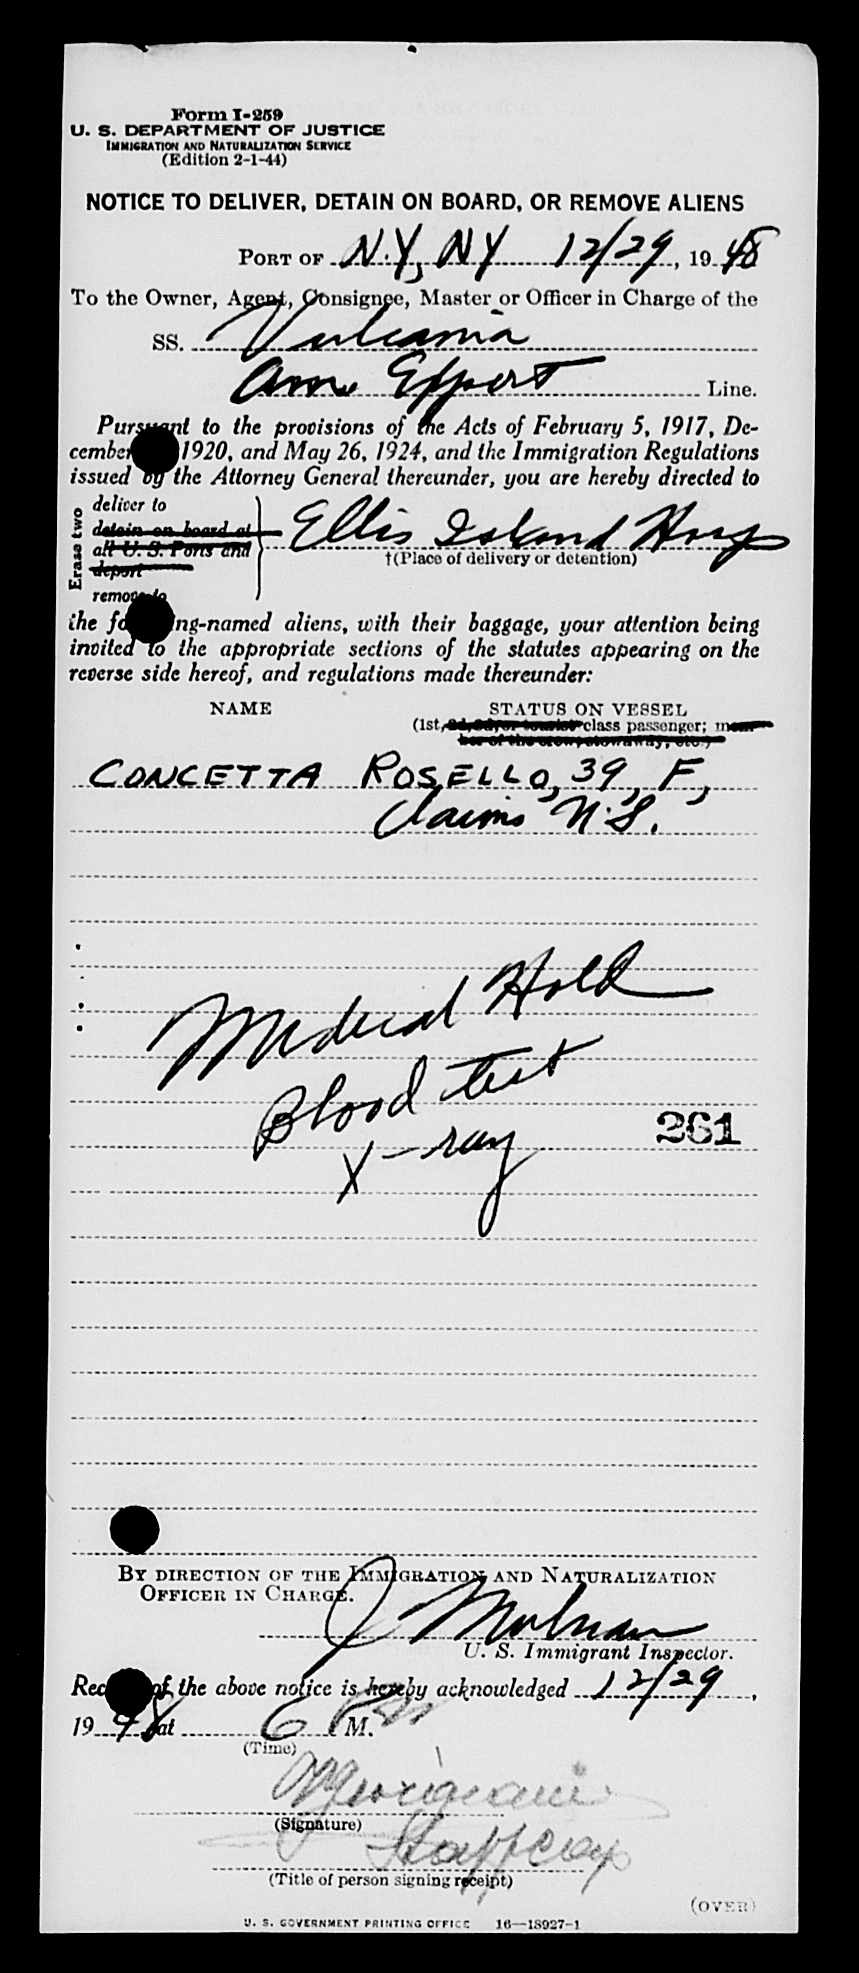 Form I-259
U. S. DEPARTMENT OF JUSTICE
IMMIGRATION AND NATURALIZATION SERVICE
(Edition 2-1-44)
NOTICE TO DELIVER, DETAIN ON BOARD, OR REMOVE ALIENS
PORT OF N.Y, NY 12/29, 1948
To the Owner, Agent, Consignee, Master or Officer in Charge of the
SS. Vulcania
Am. Export Line.
Pursuant to the provisions of the Acts of February 5, 1917, De-
cember 1920, and May 26, 1924, and the Immigration Regulations
issued by the Attorney General thereunder, you are hereby directed to
Erase two
deliver to
detain on board at
all U. S. Ports and
deport
remove to
Ellis Island Hosp
†(Place of delivery or detention)
the fo ing-named aliens, with their baggage, your attention being
invited to the appropriate sections of the statutes appearing on the
reverse side hereof, and regulations made thereunder:
NAME STATUS ON VESSEL
(1st, 2d, 3d, or tourist class passenger; mem-
ber of the crew, stowaway, etc.)
CONCETTA ROSELLO, 39, F,
Claims N.S.
Medical Hold
Blood test
X-ray
261
BY DIRECTION OF THE IMMIGRATION AND NATURALIZATION
OFFICER IN CHARGE.
J
U. S. Immigrant Inspector.
Rec of the above notice is hereby acknowledged 12/29,
1948 at 6 PM M.
(Time)
(Signature)
Staff Cap
(Title of person signing receipt)
(OVER)
U. S. GOVERNMENT PRINTING OFFICE 16—18927-1